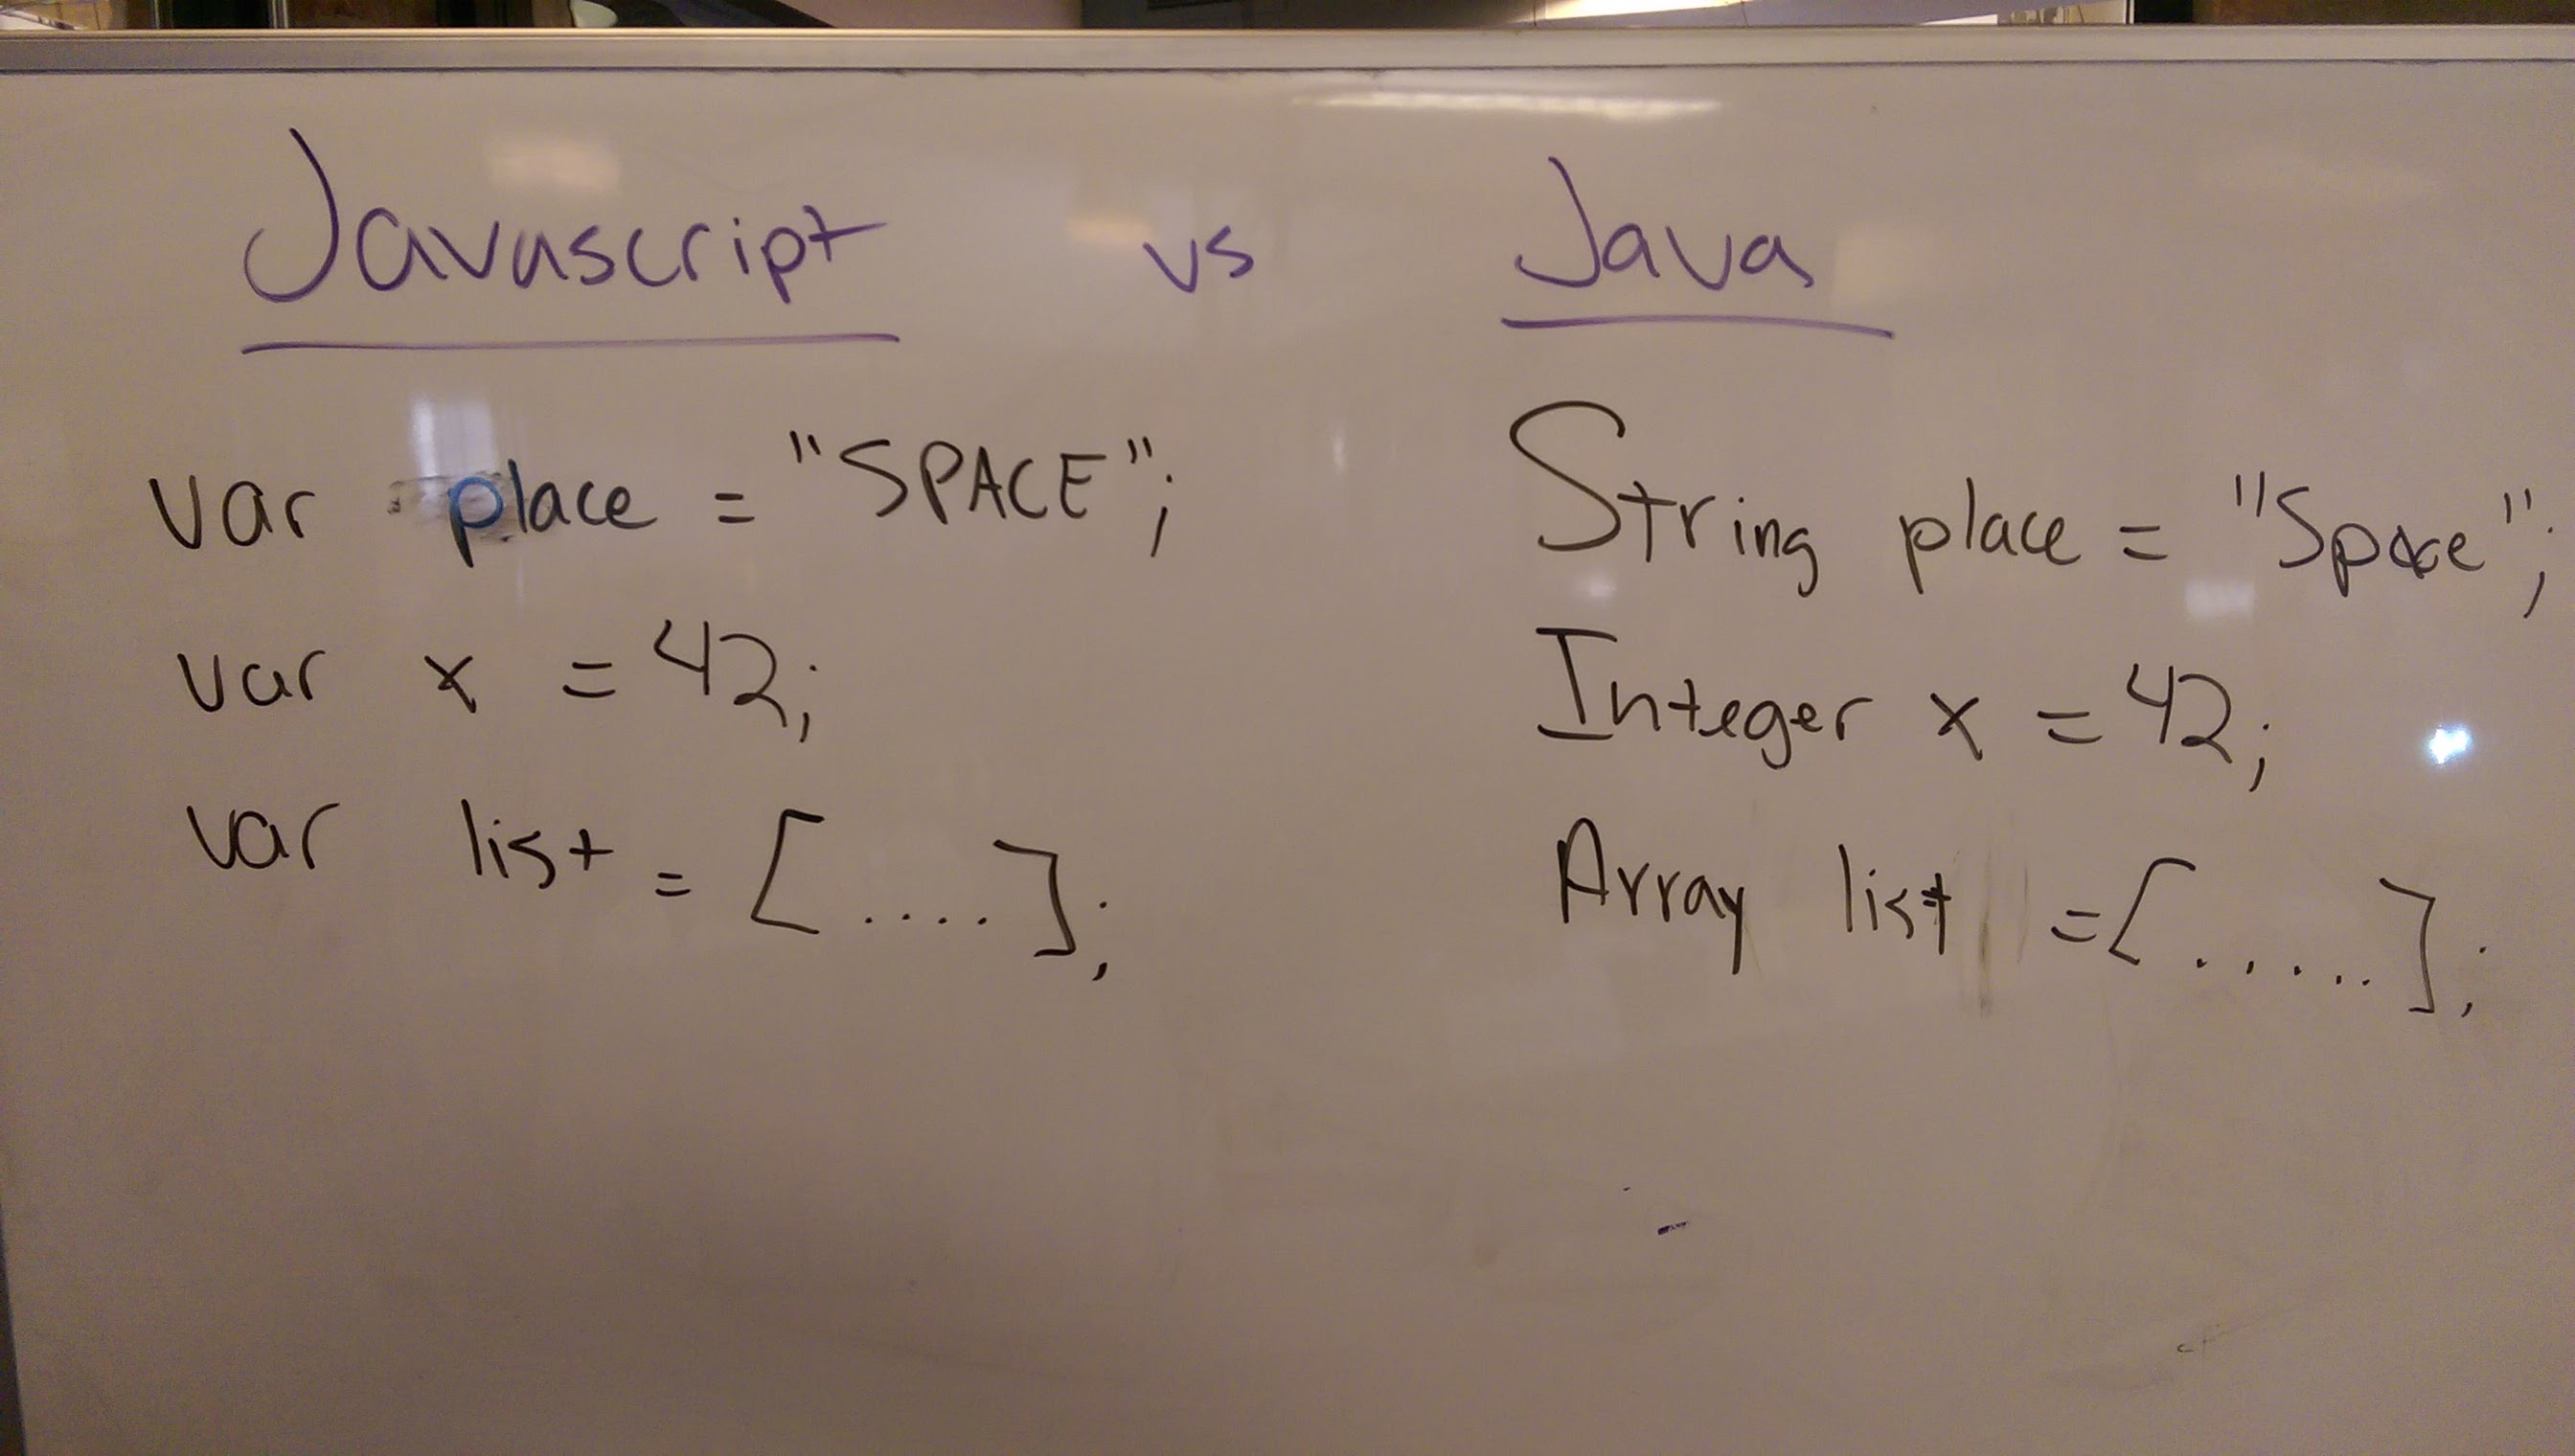 Javascript vs Java
var place = "SPACE";
var x = 42;
var list = [....];
String place = "Space";
Integer x = 42;
Array list = [.....];